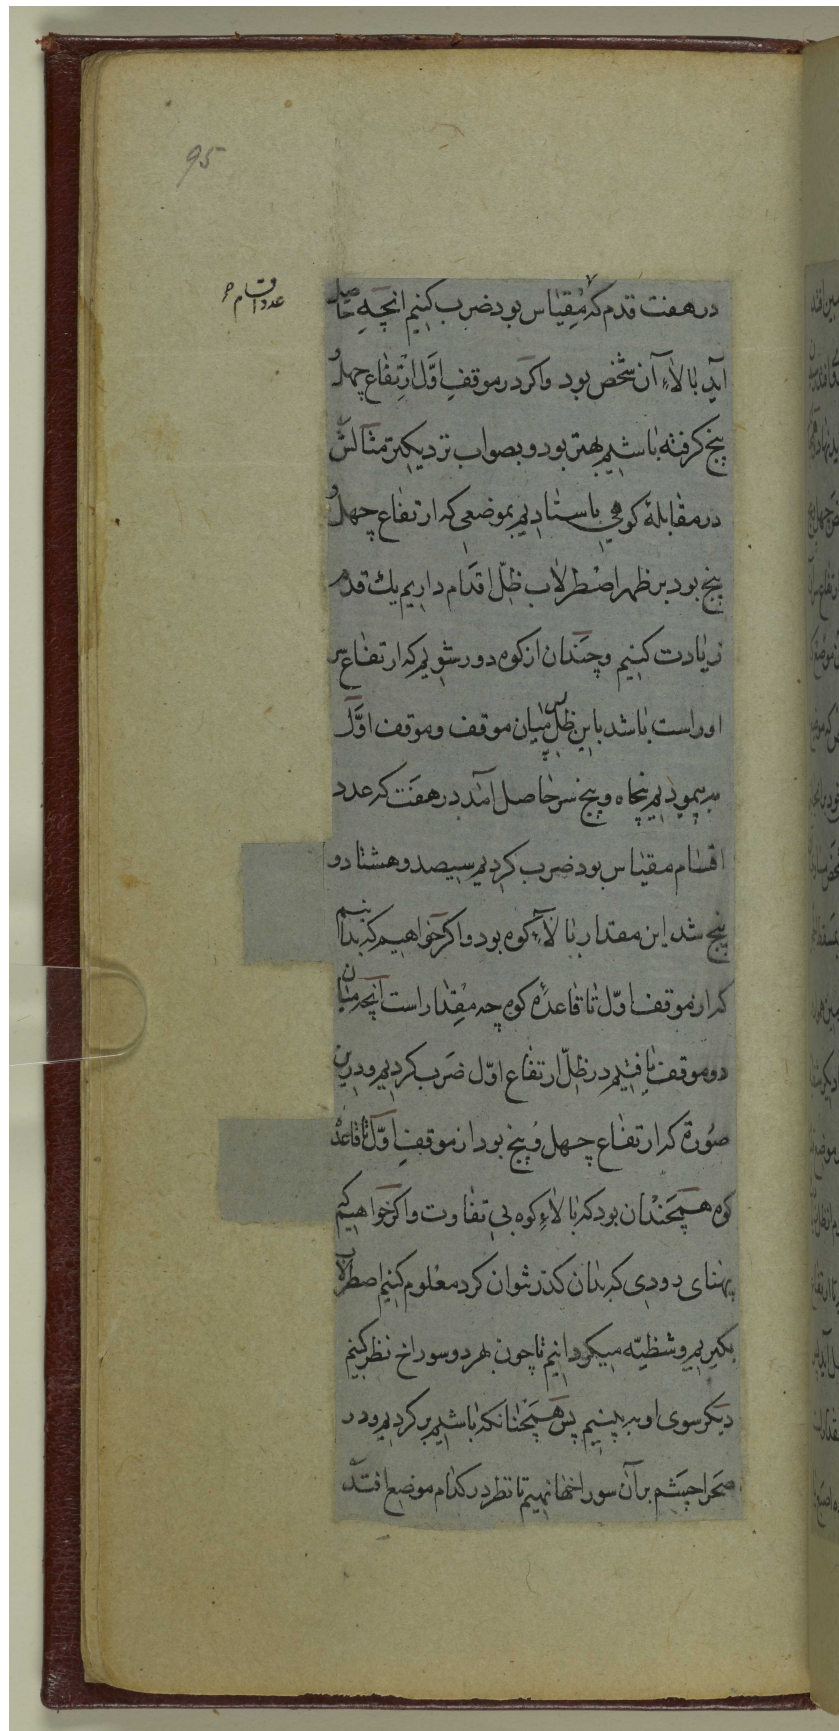 95
عدد اقسام
در هفت قدم که مقیاس بود ضرب کنیم انچه حاصل
آید بالاء آن شخص بود واکر در موقف اوّل ارتفاع چهل و
پنج کرفته باشیم بهتر بود و بصواب نزدیکتر مثالش
در مقابلهٔ کوهی باستادیم بموضعی که ارتفاع چهل و
پنج بود بر ظهر اصطرلاب ظلّ اقدام داریم یك قدم
زیادت کنیم وچندان از کوه دور شویم که ارتفاع سر
او راست باشد باین ظلّ پس میان موقف وموقف اوّل
به پیمودیم پنجاه و پنج حاصل آمد در هفت که عدد
اقسام مقیاس بود ضرب کردیم سیصد وهشتاد و
پنج شد این مقدار بالاء کوه بود واکر خواهیم که بدانیم
که از موقف اوّل تا قاعدهٔ کوه چه مقدار است آنچه میان
دو موقف یافتیم در ظلّ ارتفاع اوّل ضرب کردیم ودرین
صورة که ارتفاع چهل و پنج بود از موقف اوّل تا قاعدهٔ
کوه همچندان بود که بالاء کوه بی تفاوت واکر خواهیم کی
پهنای رودی که بدان کذر نتوان کرد معلوم کنیم اصطرلاب
بکیریم وشظیّه میکردانیم تا چون بهر دو سوراخ نظر کنیم
دیکر سوی او به بینیم پس همچنانکه باشیم بر کردیم ودر
صحرا چشم بر آن سوراخها نهیم تا نظر در کدام موضع افتد